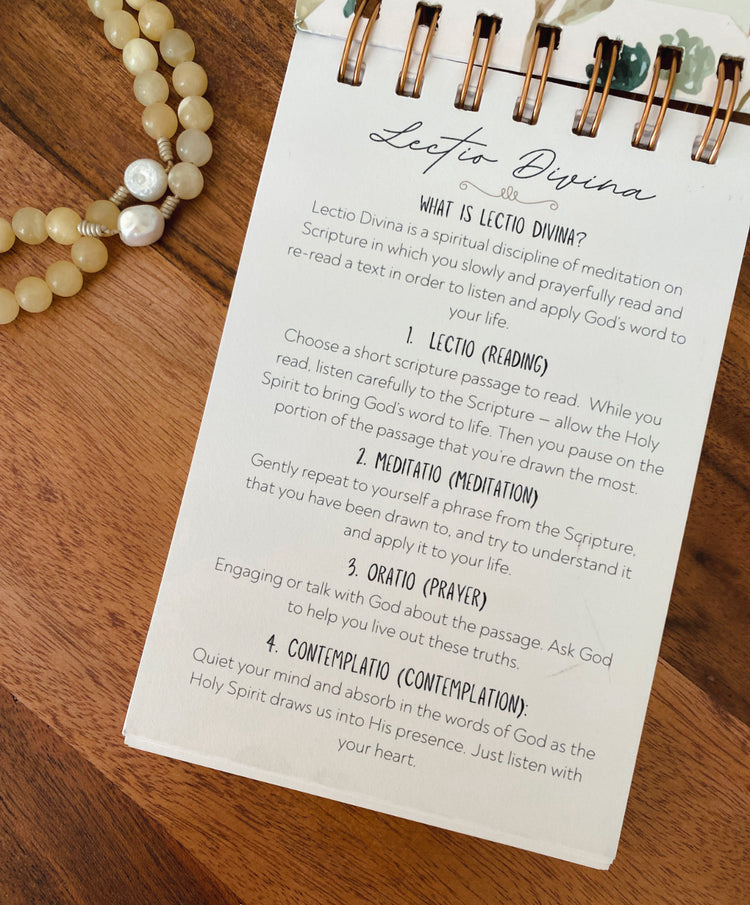 Lectio Divina
WHAT IS LECTIO DIVINA?
Lectio Divina is a spiritual discipline of meditation on
Scripture in which you slowly and prayerfully read and
re-read a text in order to listen and apply God's word to
your life.
1. LECTIO (READING)
Choose a short scripture passage to read. While you
read, listen carefully to the Scripture – allow the Holy
Spirit to bring God's word to life. Then you pause on the
portion of the passage that you're drawn the most.
2. MEDITATIO (MEDITATION)
Gently repeat to yourself a phrase from the Scripture,
that you have been drawn to, and try to understand it
and apply it to your life.
3. ORATIO (PRAYER)
Engaging or talk with God about the passage. Ask God
to help you live out these truths.
4. CONTEMPLATIO (CONTEMPLATION):
Quiet your mind and absorb in the words of God as the
Holy Spirit draws us into His presence. Just listen with
your heart.